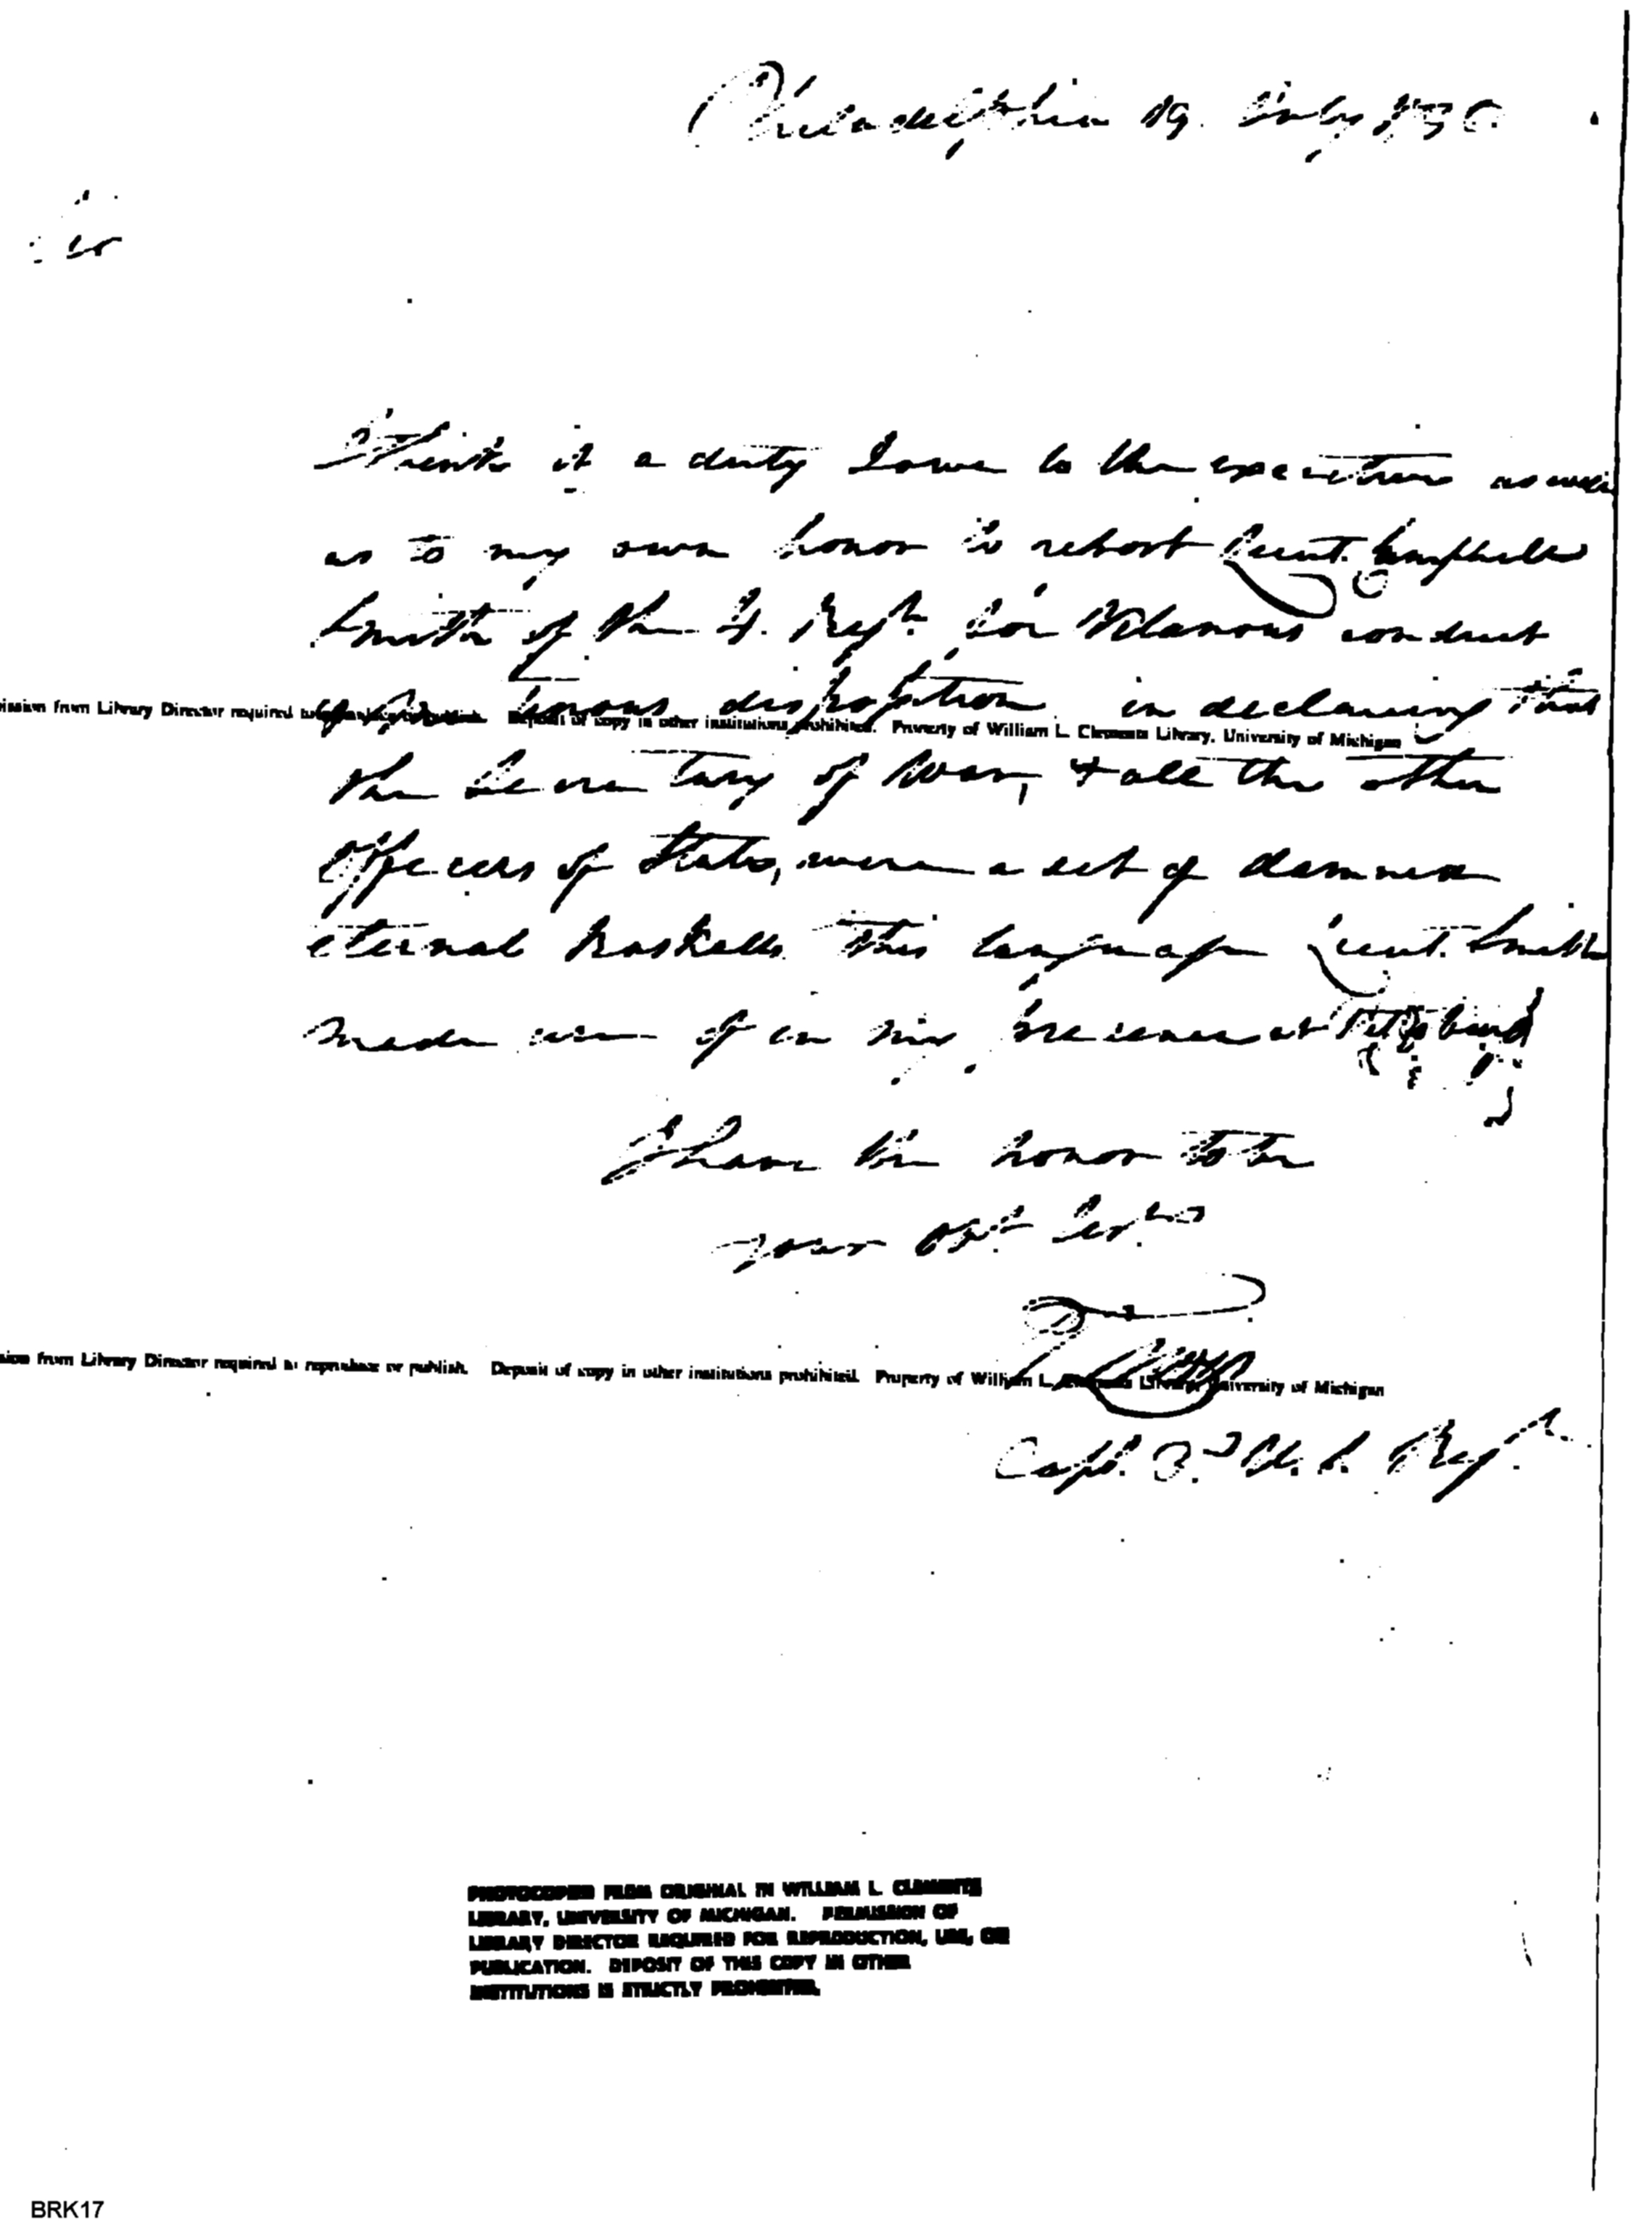 Philadelphia 19. July
Sir
I think it a duty I owe to the executive as well
as to my own honor to report Lieut. Campbell
Smith of the 4. Regt. for Vilanous conduct
disposition in declaring that
ission from Library Director required Deposit of copy in other institutions prohibited. Property of William L. Clements Library, University of Michigan
the Secretary of War, & all the other
Officers of State, were a set of damned
eternal Raskells this language Lieut. Smith
made use of in my presence at Pittsburg
I have the honor to be
your Obt. Sert
sion from Library Director required to reproduce or publish. Deposit of copy in other institutions prohibited. Property of William L. Clements Library, University of Michigan
Capt. 3d U. S. Regt.
PHOTOCOPIED FROM ORIGINAL IN WILLIAM L. CLEMENTS
LIBRARY, UNIVERSITY OF MICHIGAN. PERMISSION OF
LIBRARY DIRECTOR REQUIRED FOR REPRODUCTION, USE, OR
PUBLICATION. DEPOSIT OF THIS COPY IN OTHER
INSTITUTIONS IS STRICTLY PROHIBITED.
BRK17